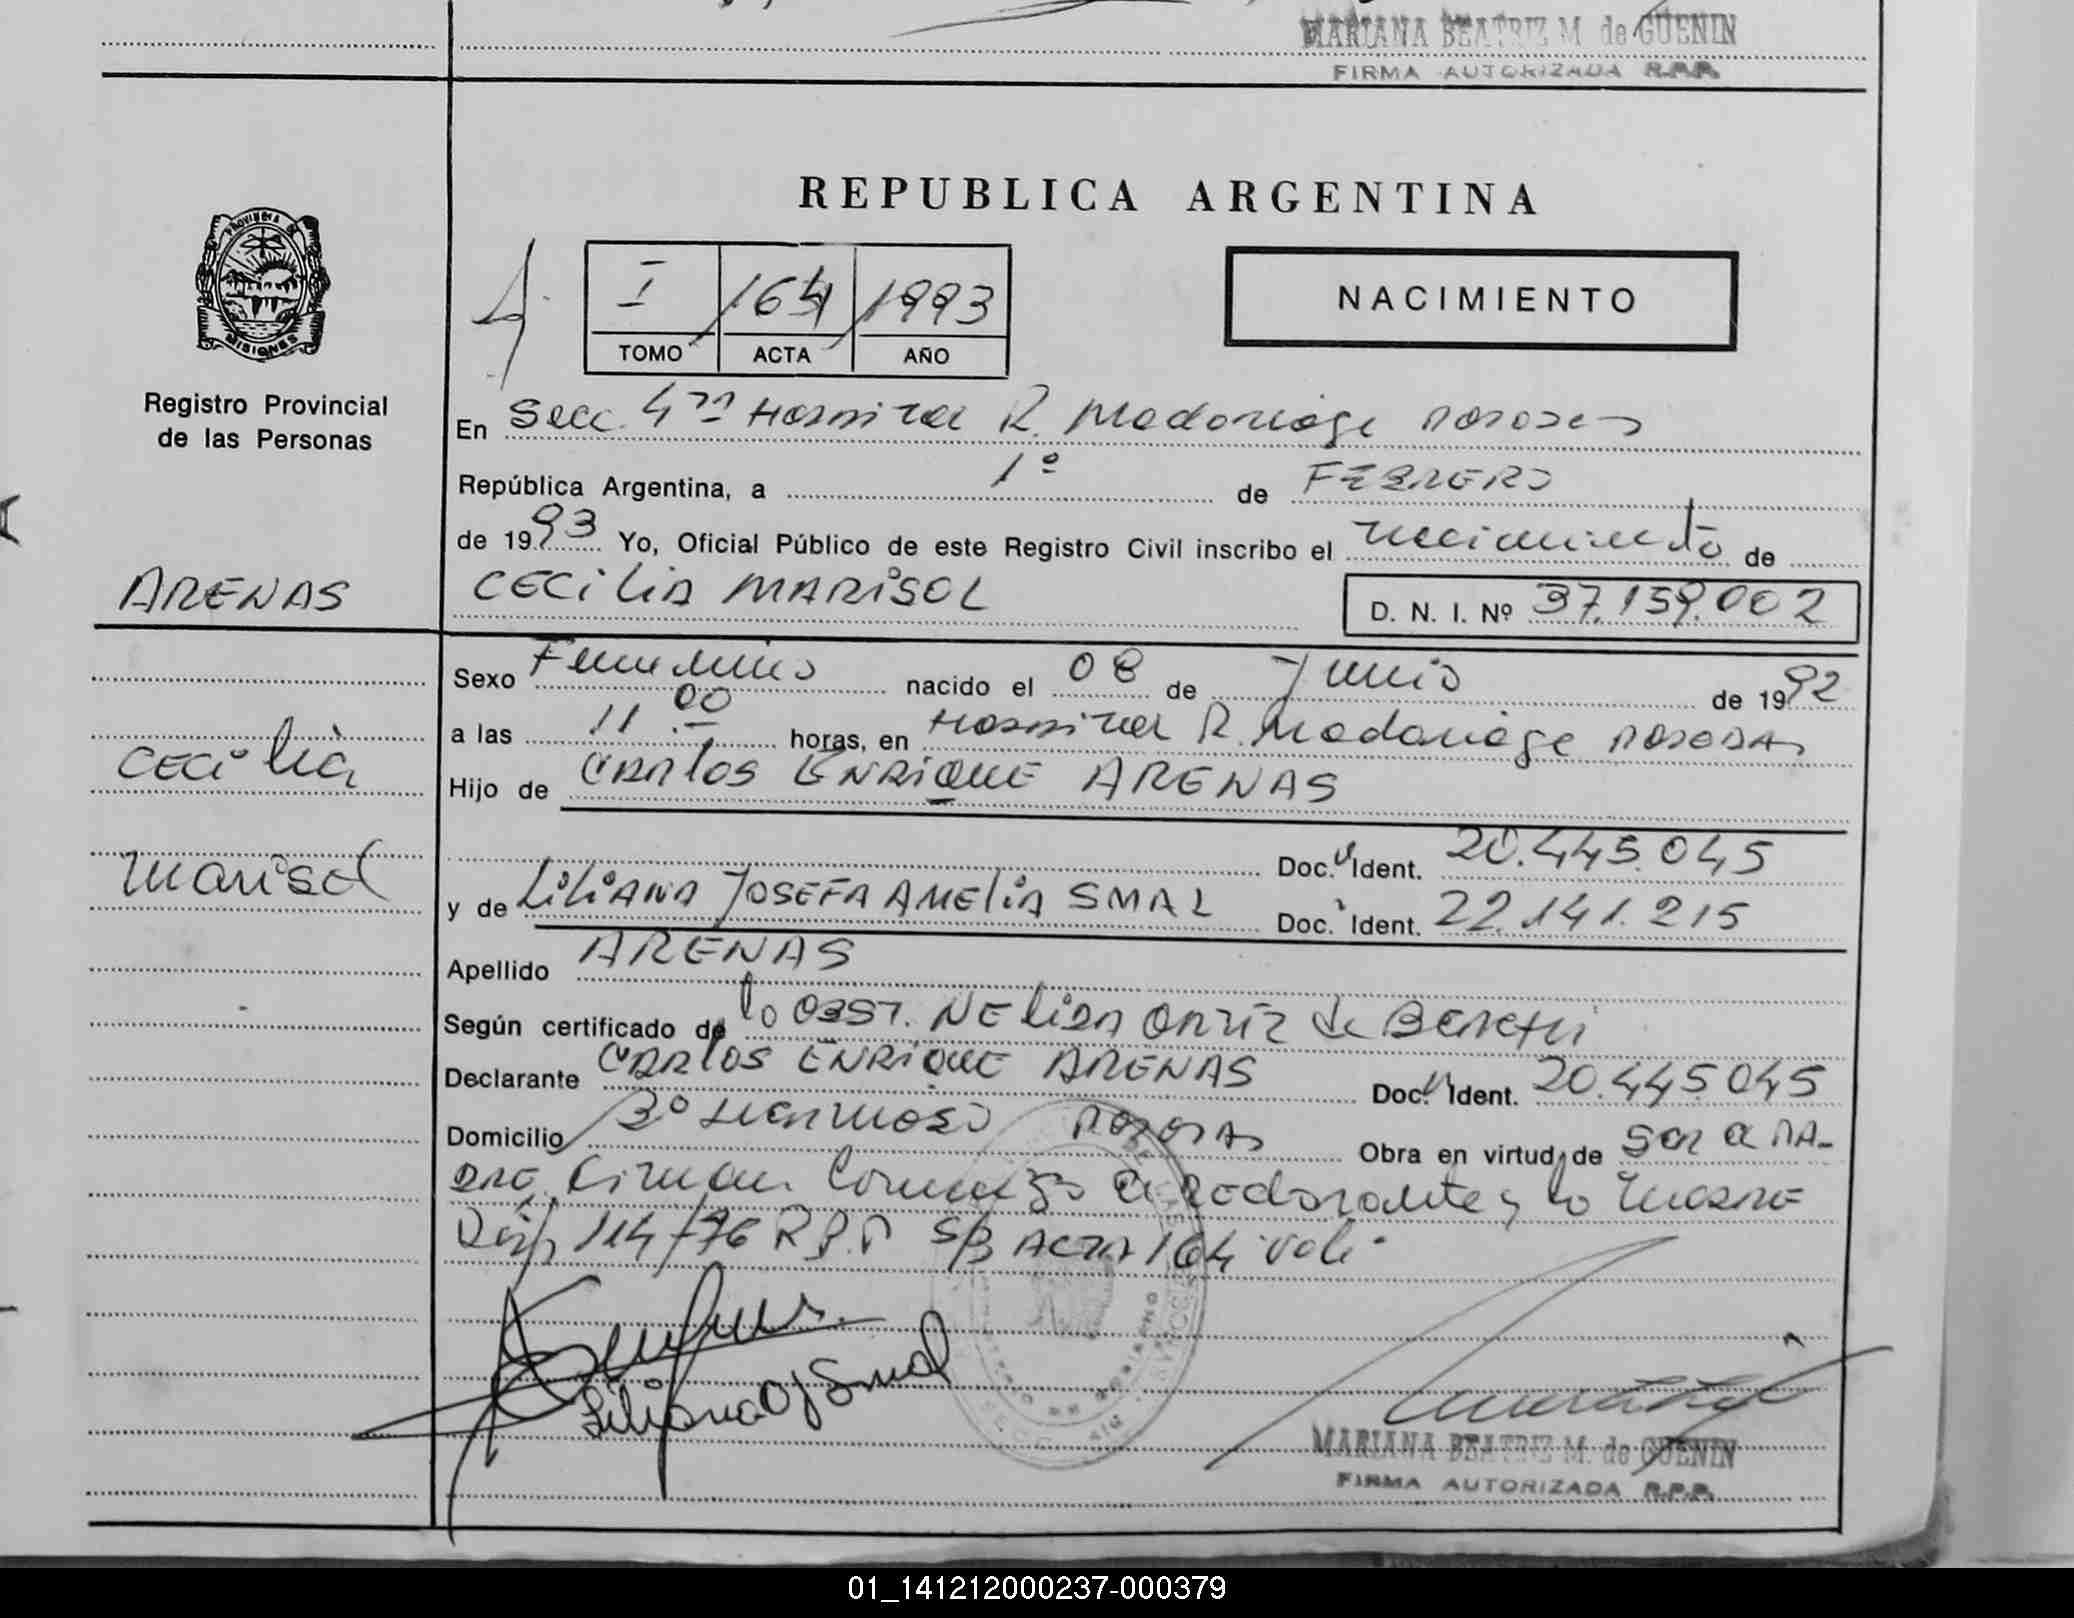 MARIANA BEATRIZ M. de GUENIN
FIRMA AUTORIZADA R.P.P.
REPUBLICA ARGENTINA
PROVINCIA DE MISIONES
I 164 1993
TOMO ACTA AÑO
NACIMIENTO
Registro Provincial
de las Personas
En Secc. 4ta Hospital R. Madariaga Posadas
República Argentina, a 1º de FEBRERO
de 1993 Yo, Oficial Público de este Registro Civil inscribo el nacimiento de
ARENAS
CECILIA MARISOL
D. N. I. Nº 37.159.002
Sexo Femenino nacido el 08 de Junio de 1992
a las 11.00 horas, en Hospital R. Madariaga POSADAS
Cecilia
Hijo de CARLOS ENRIQUE ARENAS
Doc. Ident. 20.445.045
Marisol
y de LILIANA JOSEFA AMELIA SMAL Doc. Ident. 22.141.215
Apellido ARENAS
Según certificado de la OBST. NELIDA ORTIZ de
Declarante CARLOS ENRIQUE ARENAS Doc. Ident. 20.445.045
Domicilio Bº POSADAS Obra en virtud de ser el PA-
DRE. Firman Conmigo el Declarante y la MADRE
Disp 114/76 R.P.P. S/B ACTA 164 Vale
Liliana J Smal
MARIANA BEATRIZ M. de GUENIN
FIRMA AUTORIZADA R.P.P.
01_141212000237-000379